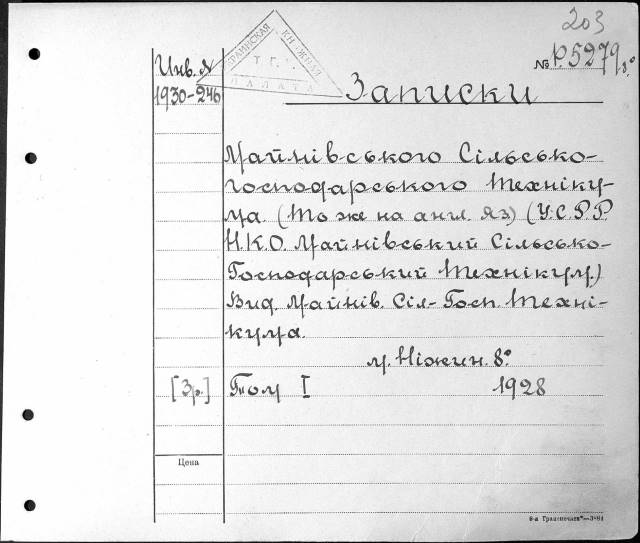 203
Инв. №
1930-246
УКРАИНСКАЯ КНИЖНАЯ ПАЛАТА
Т. Г.
№ Р.5279 8°
Записки
Майнівського Сільсько-
господарського Техніку-
ма. (То же на англ. яз) (У.С.Р.Р.
Н.К.О. Майнівський Сільсько-
Господарський Технікум.)
Вид. Майнів. Сіл-Госп. Техні-
кума.
м. Ніжин. 8°
[3р.] Том I 1928
Цена